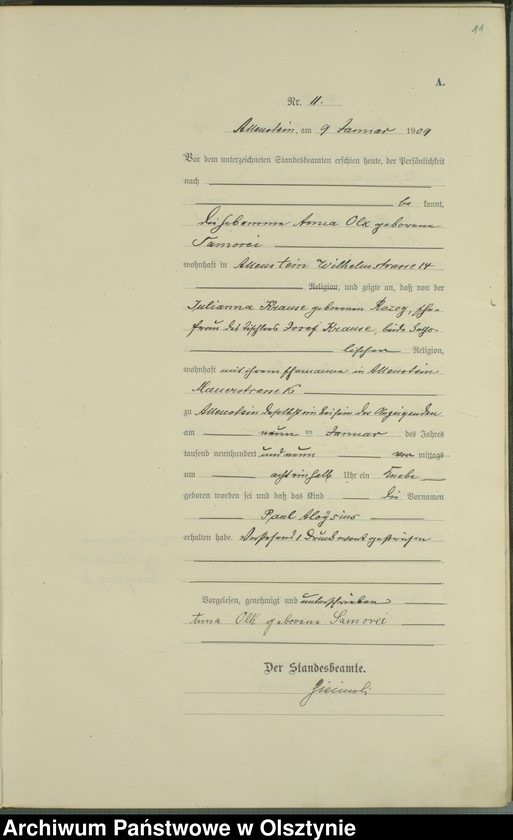 11
A.
Nr. 11.
Allenstein, am 9 Januar 1909
Vor dem unterzeichneten Standesbeamten erschien heute, der Persönlichkeit
nach
be kannt,
die Hebamme Anna Olk geborene
Samorei
wohnhaft in Allenstein Wilhelmstrasse 14
Religion, und zeigte an, daß von der
Julianna Krause geborenen Rozog, Ehe-
frau des Tischlers Josef Krause, beide katho-
lischer Religion,
wohnhaft mit ihrem Ehemanne in Allenstein
Mauerstrasse
zu Allenstein daselbst im Beisein der Anzeigenden
am neun ten Januar des Jahres
tausend neunhundert und neun vor mittags
um acht ein halb Uhr ein Knabe
geboren worden sei und daß das Kind die Vornamen
Paul Aloysius
erhalten habe. Vorstehend 1 Druckwort gestrichen
Vorgelesen, genehmigt und unterschrieben
Anna Olk geborene Samorei
Der Standesbeamte.
Archiwum Państwowe w Olsztynie